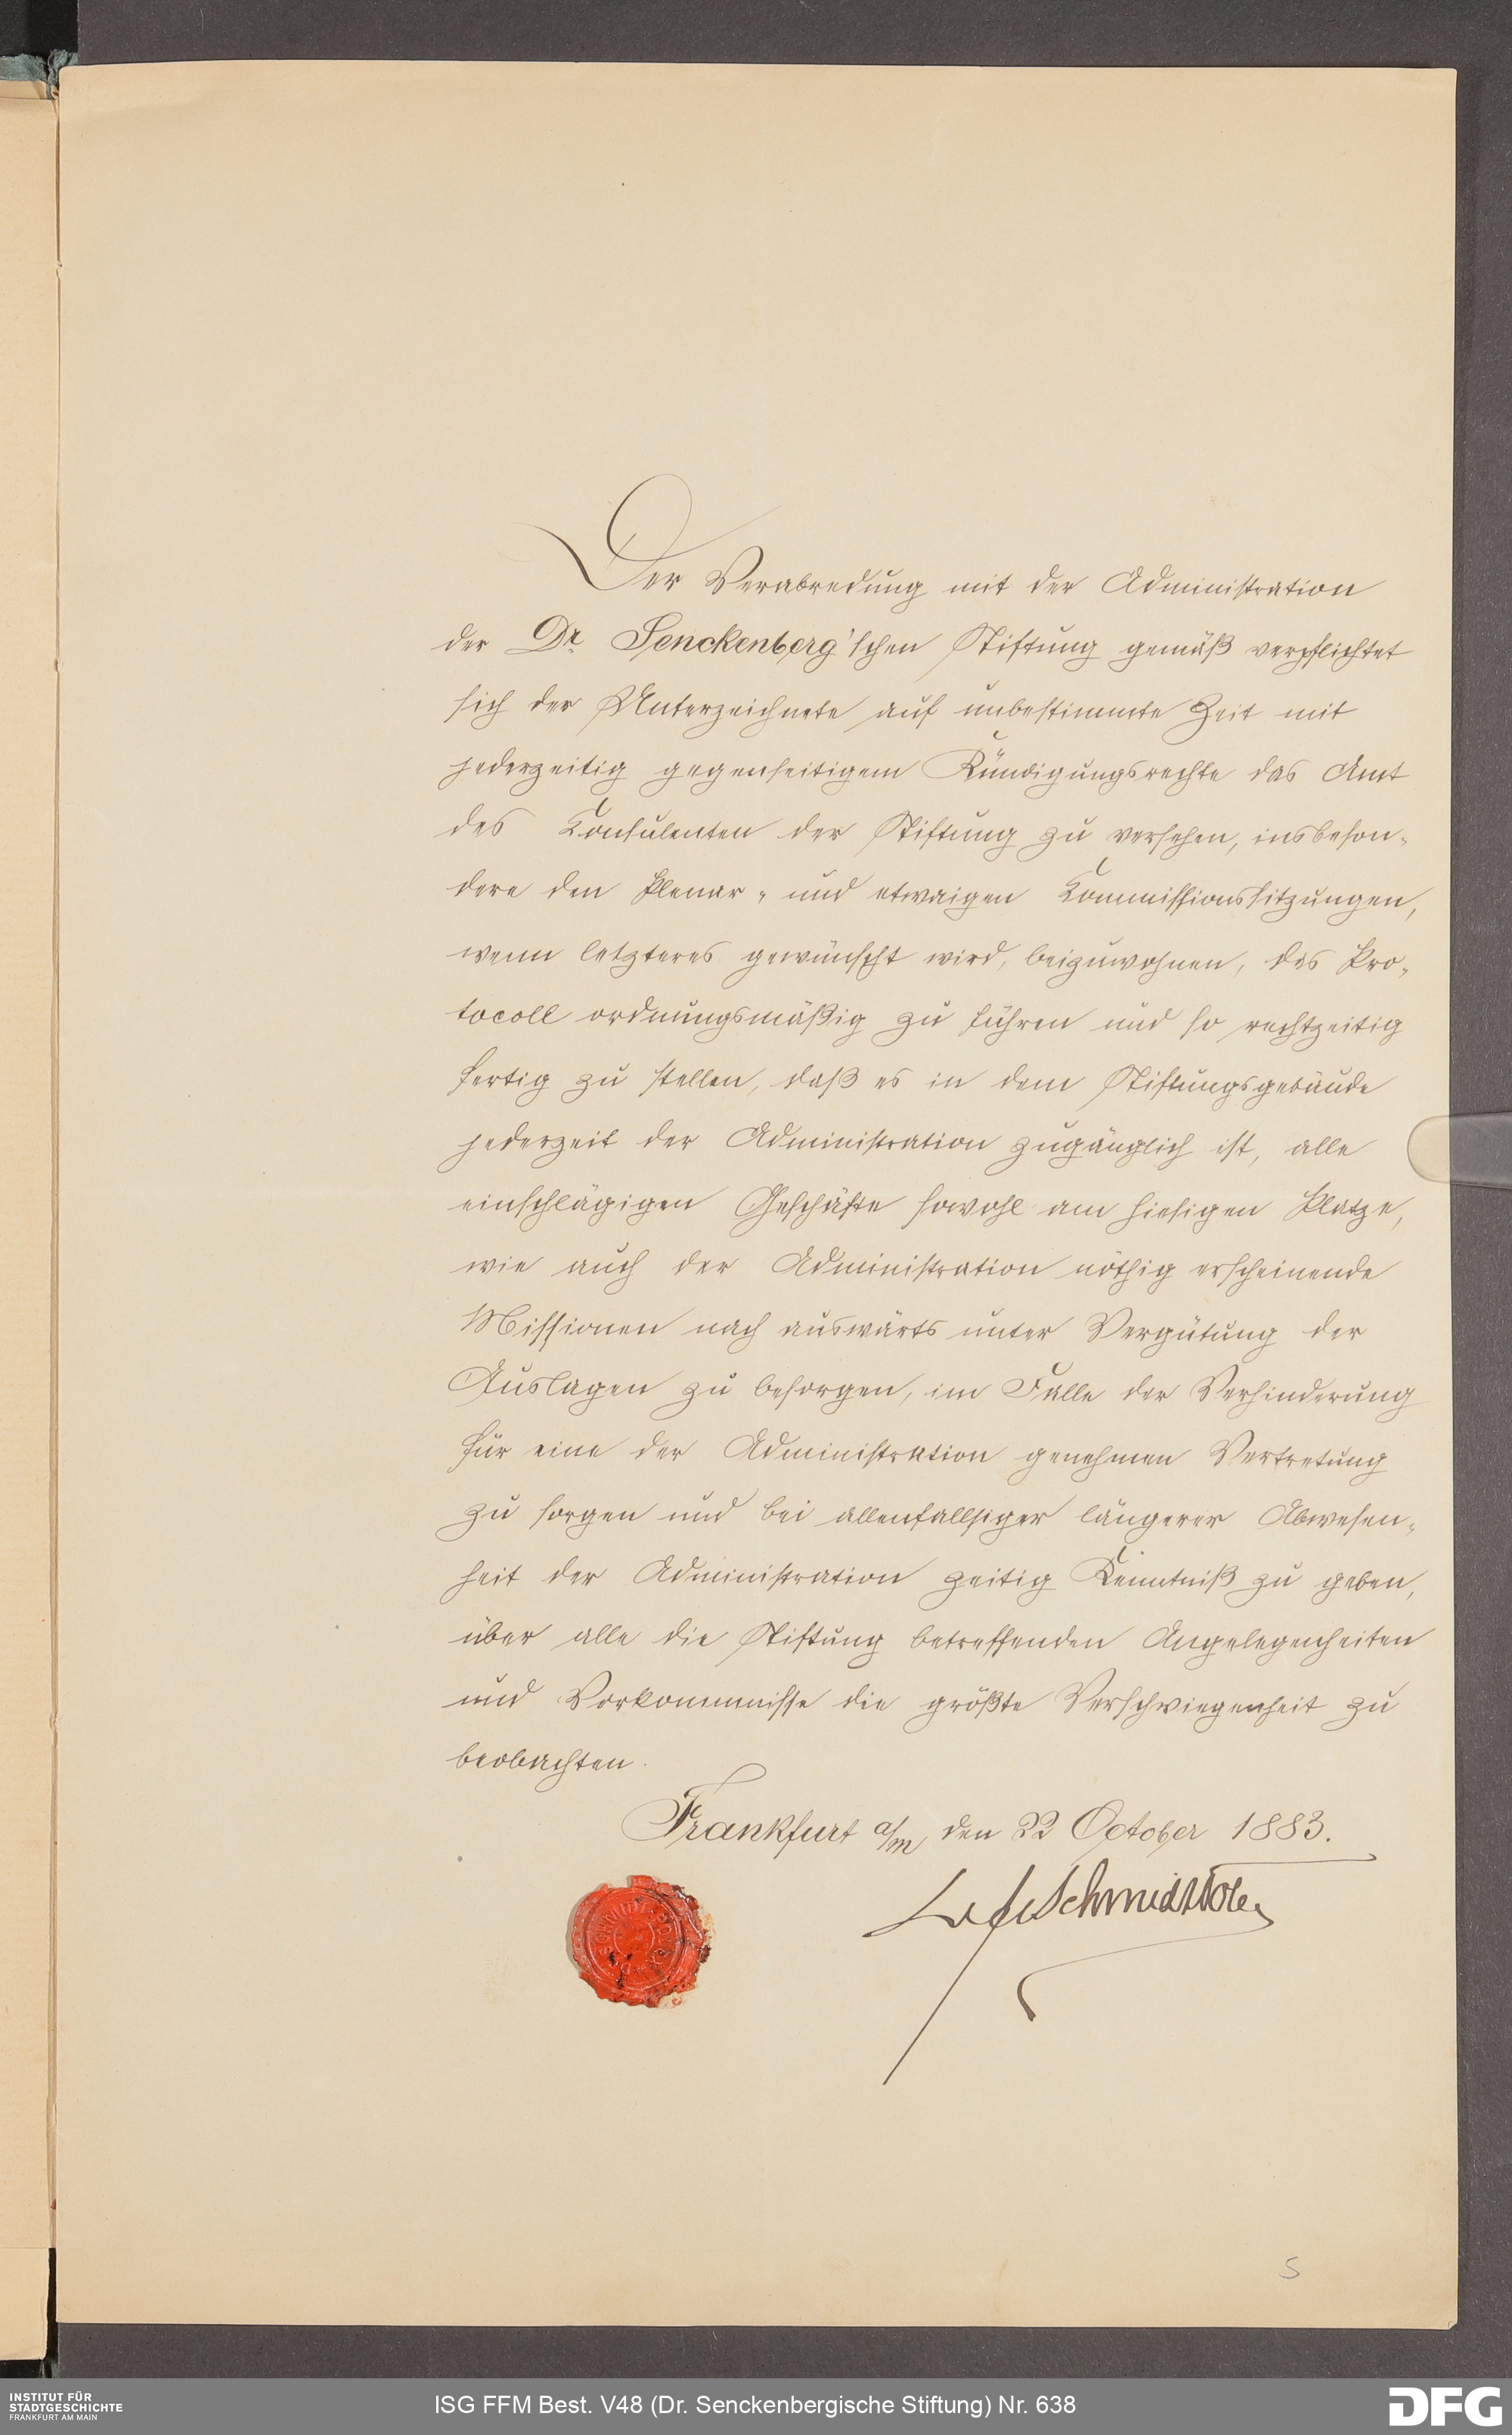 Der Verabredung mit der Administration
der Dr. Senckenberg'schen Stiftung gemäß verpflichtet
sich der Unterzeichnete auf unbestimmte Zeit mit
jederzeitig gegenseitigem Kündigungsrechte das Amt
des Consulenten der Stiftung zu versehen, insbeson-
dere den Plenar- und etwaigen Commissionssitzungen,
wenn letzteres gewünscht wird, beizuwohnen, das Pro-
tocoll ordnungsmäßig zu führen und so rechtzeitig
fertig zu stellen, daß es in dem Stiftungsgebäude
jederzeit der Administration zugänglich ist, alle
einschlägigen Geschäfte sowohl am hiesigen Platze,
wie auch der Administration nöthig erscheinende
Missionen nach auswärts unter Vergütung der
Auslagen zu besorgen, im Falle der Verhinderung
für eine der Administration genehmen Vertretung
zu sorgen und bei allenfallsiger längerer Abwesen-
heit der Administration zeitig Kenntniß zu geben,
über alle die Stiftung betreffenden Angelegenheiten
und Vorkommnisse die größte Verschwiegenheit zu
beobachten.
Frankfurt a/m, den 22 October 1883.
5
INSTITUT FÜR
STADTGESCHICHTE
FRANKFURT AM MAIN
ISG FFM Best. V48 (Dr. Senckenbergische Stiftung) Nr. 638
DFG